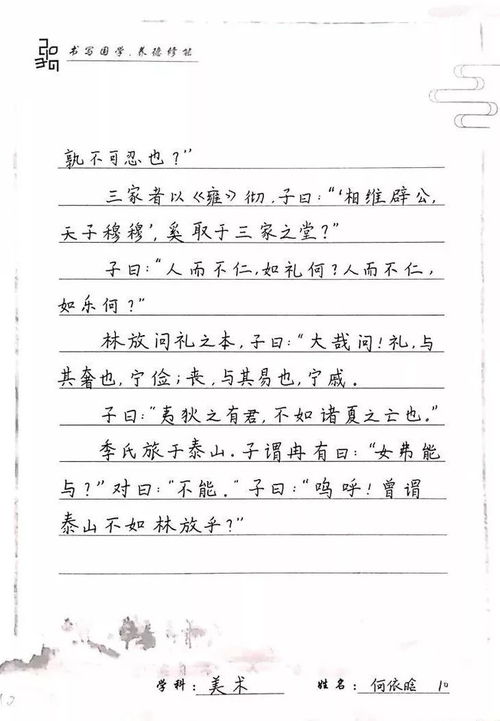 书写国学·养德修能
孰不可忍也？”
三家者以《雍》彻，子曰：“‘相维辟公，
天子穆穆’，奚取于三家之堂？”
子曰：“人而不仁，如礼何？人而不仁，
如乐何？”
林放问礼之本，子曰：“大哉问！礼，与
其奢也，宁俭；丧，与其易也，宁戚．
子曰：“夷狄之有君，不如诸夏之亡也．”
季氏旅于泰山．子谓冉有曰：“女弗能
与？”对曰：“不能．”子曰：“呜呼！曾谓
泰山不如林放乎？”
学科：美术 姓名：何依晗 10